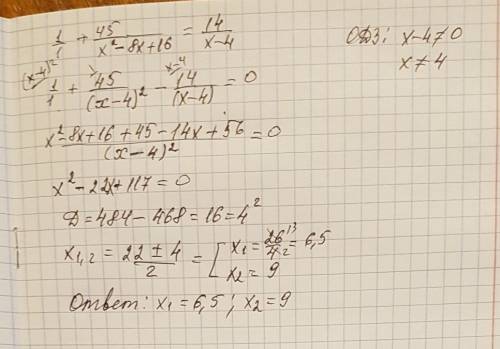 1/1 + 45/(x² - 8x + 16) = 14/(x-4) ОДЗ: x-4≠0
x≠4
(x-4)² 1/1 + 45/(x-4)² - x-4 14/(x-4) = 0
(x² - 8x + 16 + 45 - 14x + 56)/(x-4)² = 0
x² - 22x + 117 = 0
Д = 484 - 468 = 16 = 4²
x₁,₂ = (22 ± 4)/2 = [ x₁ = 26 13/4 2 = 6,5
x₂ = 9
Ответ: x₁ = 6,5; x₂ = 9